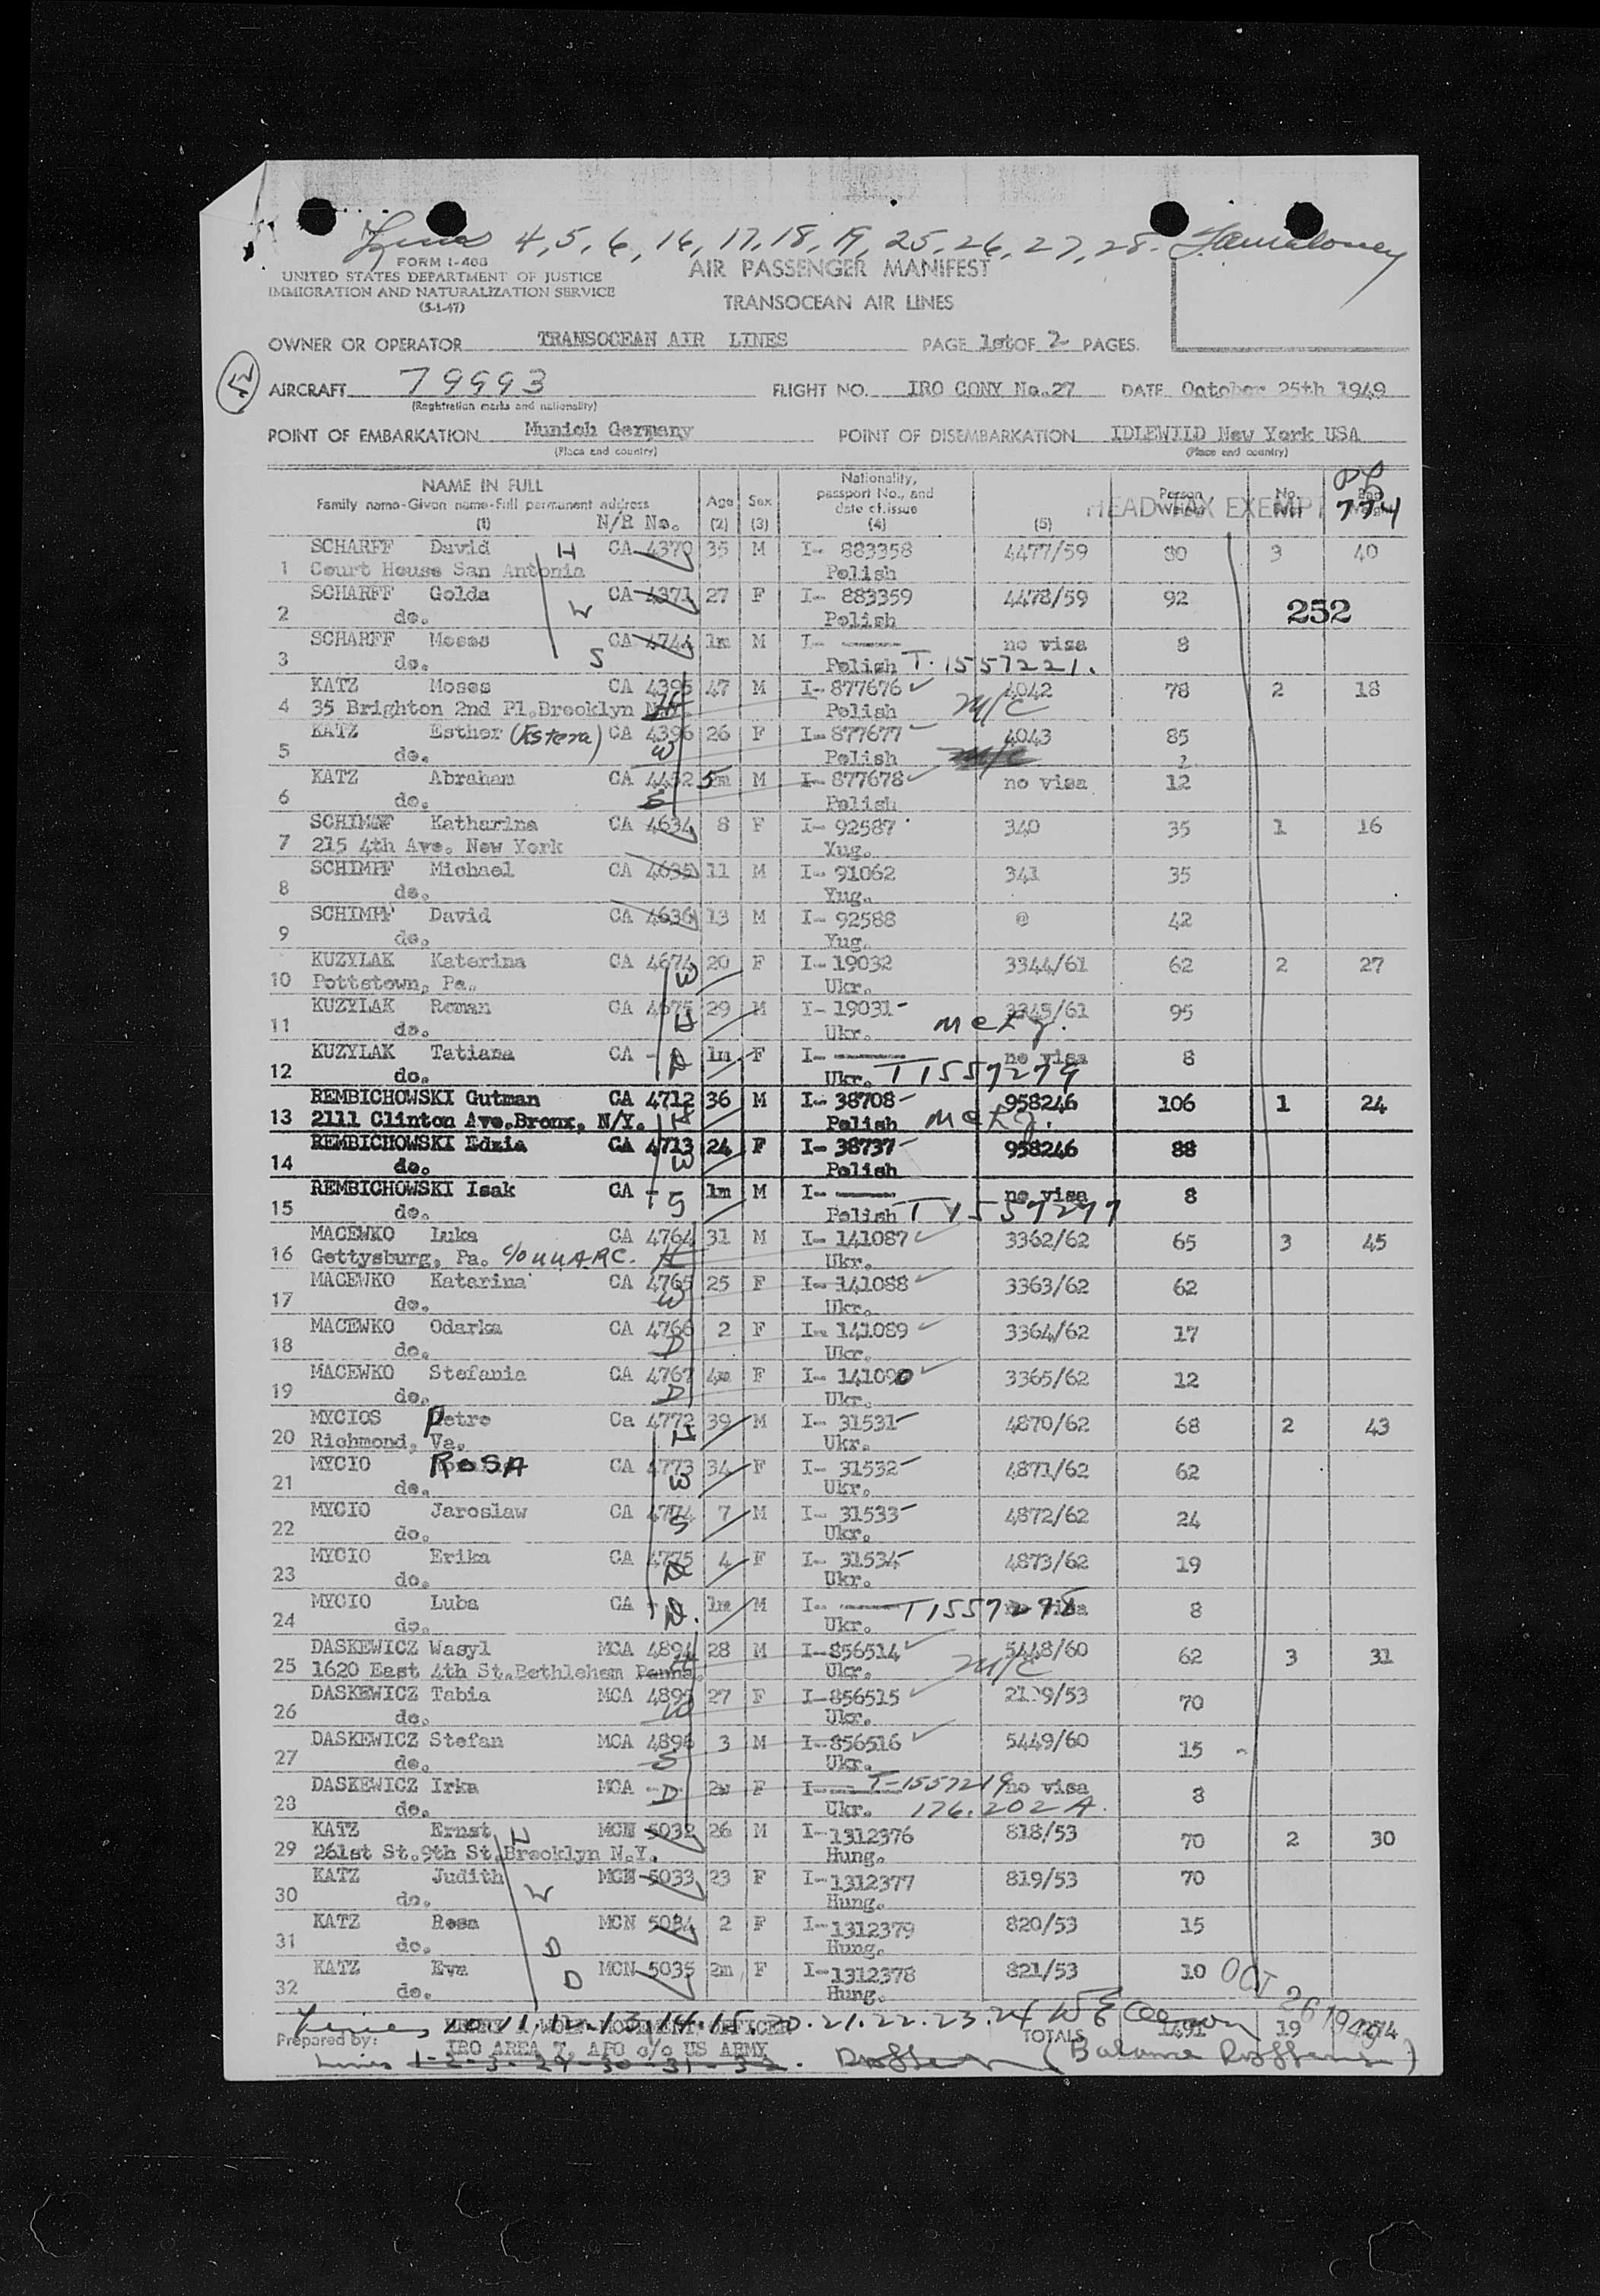 Lines 4, 5, 6, 16, 17, 18, 19, 25, 26, 27, 28.
FORM I-466
UNITED STATES DEPARTMENT OF JUSTICE
IMMIGRATION AND NATURALIZATION SERVICE
(5-1-47)
AIR PASSENGER MANIFEST
TRANSOCEAN AIR LINES
OWNER OR OPERATOR TRANSOCEAN AIR LINES PAGE 1st OF 2 PAGES.
AIRCRAFT 79993 FLIGHT NO. IRO CONY No.27 DATE October 25th 1949
(Registration marks and nationality)
POINT OF EMBARKATION Munich Germany POINT OF DISEMBARKATION IDLEWILD New York USA
(Place and country) (Place and country)
NAME IN FULL Age Sex Nationality, passport No., and date of issue Person No.
Family name-Given name-Full permanent address HEAD TAX EXEMPT 774
(1) N/R No. (2) (3) (4) (5)
SCHARFF David H CA 4370 35 M I- 883358 4477/59 80 3 40
1 Court House San Antonia Polish
SCHARFF Golda CA 4371 27 F I- 883359 4478/59 92 252
2 do. W Polish
SCHARFF Moses CA 4744 1m M I- no visa 8
3 do. S Polish T.1557221.
KATZ Moses CA 4395 47 M I- 877676 4042 78 2 18
4 35 Brighton 2nd Pl.Brooklyn N.Y. H Polish M/C
KATZ Esther (Estera) CA 4396 26 F I- 877677 4043 85
5 do. W Polish M/C
KATZ Abraham CA 4452 5m M I- 877678 no visa 12
6 do. S Polish
SCHIMPF Katharina CA 4634 8 F I- 92587 340 35 1 16
7 215 4th Ave. New York Yug.
SCHIMPF Michael CA 4635 11 M I- 91062 341 35
8 do. Yug.
SCHIMPF David CA 4636 13 M I- 92588 @ 42
9 do. Yug.
KUZYLAK Katerina CA 4674 20 F I- 19032 3344/61 62 2 27
10 Pottstown, Pa. W Ukr.
KUZYLAK Roman CA 4675 29 M I- 19031 3345/61 95
11 do. H Ukr.
KUZYLAK Tatiana CA - D 1m F I- no visa 8
12 do. Ukr. T1557279
REMBICHOWSKI Gutman CA 4712 36 M I- 38708 958246 106 1 24
13 2111 Clinton Ave.Bronx, N/Y. H Polish
REMBICHOWSKI Edzia CA 4713 24 F I- 38737 958246 88
14 do. W Polish
REMBICHOWSKI Isak CA - S 1m M I- no visa 8
15 do. Polish T1557277
MACEWKO Luka CA 4764 31 M I- 141087 3362/62 65 3 45
16 Gettysburg, Pa. c/o UUARC. H Ukr.
MACEWKO Katarina CA 4765 25 F I- 141088 3363/62 62
17 do. W Ukr.
MACEWKO Odarka CA 4766 2 F I- 141089 3364/62 17
18 do. D Ukr.
MACEWKO Stefania CA 4767 4m F I- 141090 3365/62 12
19 do. D Ukr.
MYCIOS Petro Ca 4772 39 M I- 31531 4870/62 68 2 43
20 Richmond, Va. H Ukr.
MYCIO ROSA CA 4773 34 F I- 31532 4871/62 62
21 do. W Ukr.
MYCIO Jaroslaw CA 4774 7 M I- 31533 4872/62 24
22 do. S Ukr.
MYCIO Erika CA 4775 4 F I- 31534 4873/62 19
23 do. D Ukr.
MYCIO Luba CA - D. 1m M I- T1557278 8
24 do. Ukr.
DASKEWICZ Wasyl MCA 4894 28 M I-856514 5448/60 62 3 31
25 1620 East 4th St.Bethlehem Penna. H Ukr. M/C
DASKEWICZ Tabia MCA 4895 27 F I-856515 70
26 do. W Ukr.
DASKEWICZ Stefan MCA 4896 3 M I-856516 5449/60 15
27 do. S Ukr.
DASKEWICZ Irka MCA - D 2w F I- T-1557219 no visa 8
28 do. Ukr. 176.202 A.
KATZ Ernst H MCN 5032 26 M I-1312376 818/53 70 2 30
29 261st St.9th St.Brooklyn N.Y. Hung.
KATZ Judith MCN 5033 23 F I-1312377 819/53 70
30 do. W Hung.
KATZ Rosa MCN 5034 2 F I-1312379 820/53 15
31 do. D Hung.
KATZ Eva MCN 5035 2m F I-1312378 821/53 10
32 do. D Hung.
OCT 26 1949
Lines 10.11.12.13.14.15.20.21.22.23.24
Prepared by: MOVEMENT OFFICER TOTALS 1491 19
IRO AREA 7, APO c/o US ARMY
Lines 1-2-3-29-30-31-32. (Balance